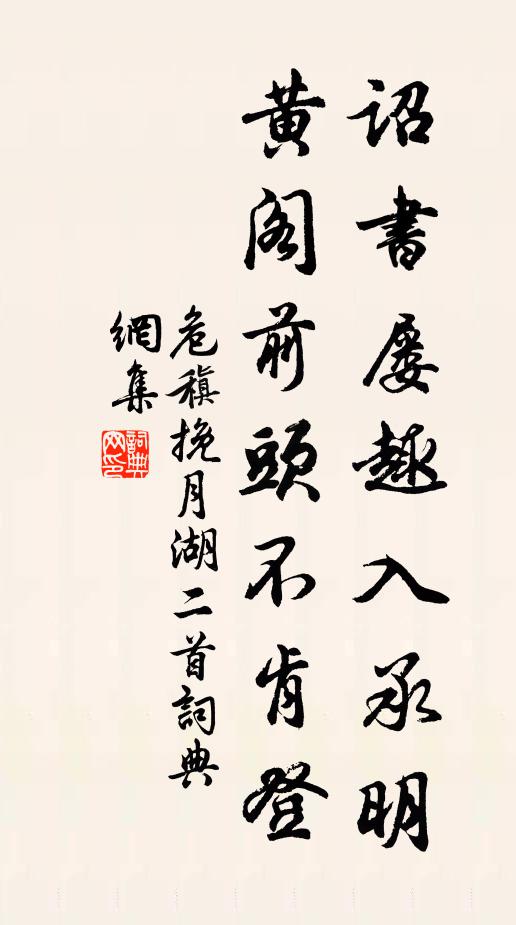 詔書屢趣入承明
黃閣前頭不肯登
危稹挽月湖二首詞典
網集
詞典網印